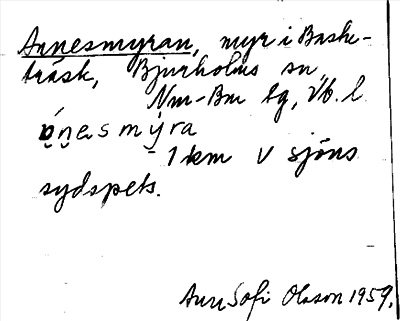 Annesmyran, myr i Baske-
träsk, Bjurholms sn,
Nm-Bm tg, Vb. l.
a̤n̤esmýra
- 1 km V sjöns
sydspets.
Ann Sofi Olsson 1959.